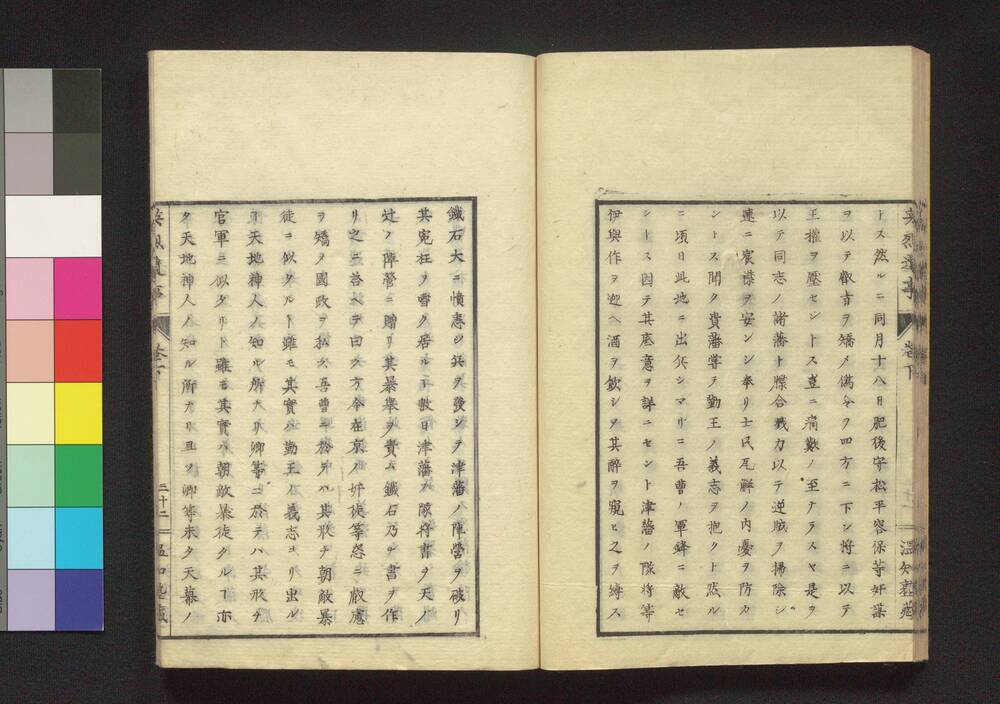 トス然ルニ同月十八日肥後守松平容保等奸謀
ヲ以テ叡旨ヲ矯メ偽令ヲ四方ニ下シ将ニ以テ
王權ヲ壓セントス豈ニ痛歎ノ至ナラスヤ是ヲ
以テ同志ノ諸藩ト牒合戮力以テ逆賊ヲ掃除シ
速ニ宸襟ヲ安ンシ奉リ士民瓦解ノ内憂ヲ防カ
ントス聞ク貴藩嘗ヲ勤王ノ義志ヲ抱クト然ル
ニ頃日此地ニ出兵シマリニ吾曹ノ軍鋒ニ敵セ
ントス因テ其底意ヲ詳ニセント津藩ノ隊将等
伊與作ヲ迎ヘ酒ヲ飲シヲ其醉ヲ窺ヒ之ヲ縛ス
鐵石大ニ憤恚シ兵ヲ發シテ津藩ノ陣營ヲ破リ
其寃枉ヲ雪ク居ルヿ數日津藩ノ隊将書ヲ天ノ
辻ノ陣營ニ贈リ其暴擧ヲ責ム鐵石乃チ書ヲ作
リ之ニ答ヘテ曰ク方今在京ノ奸徒等恣ニ叡慮
ヲ矯メ國政ヲ私ス吾曹ニ於ヲハ其形チ朝敵暴
徒ヨ似タルト雖モ其實ハ勤王ノ義志ヨリ出ル
ヿ天地神人ノ知ル所ナリ卿等ニ於テハ其形チ
官軍ニ似タリト雖モ其實ハ朝敵暴徒タルヿ亦
タ天地神人ノ知ル所ナリ且ツ卿等未タ天幕ノ
三十二